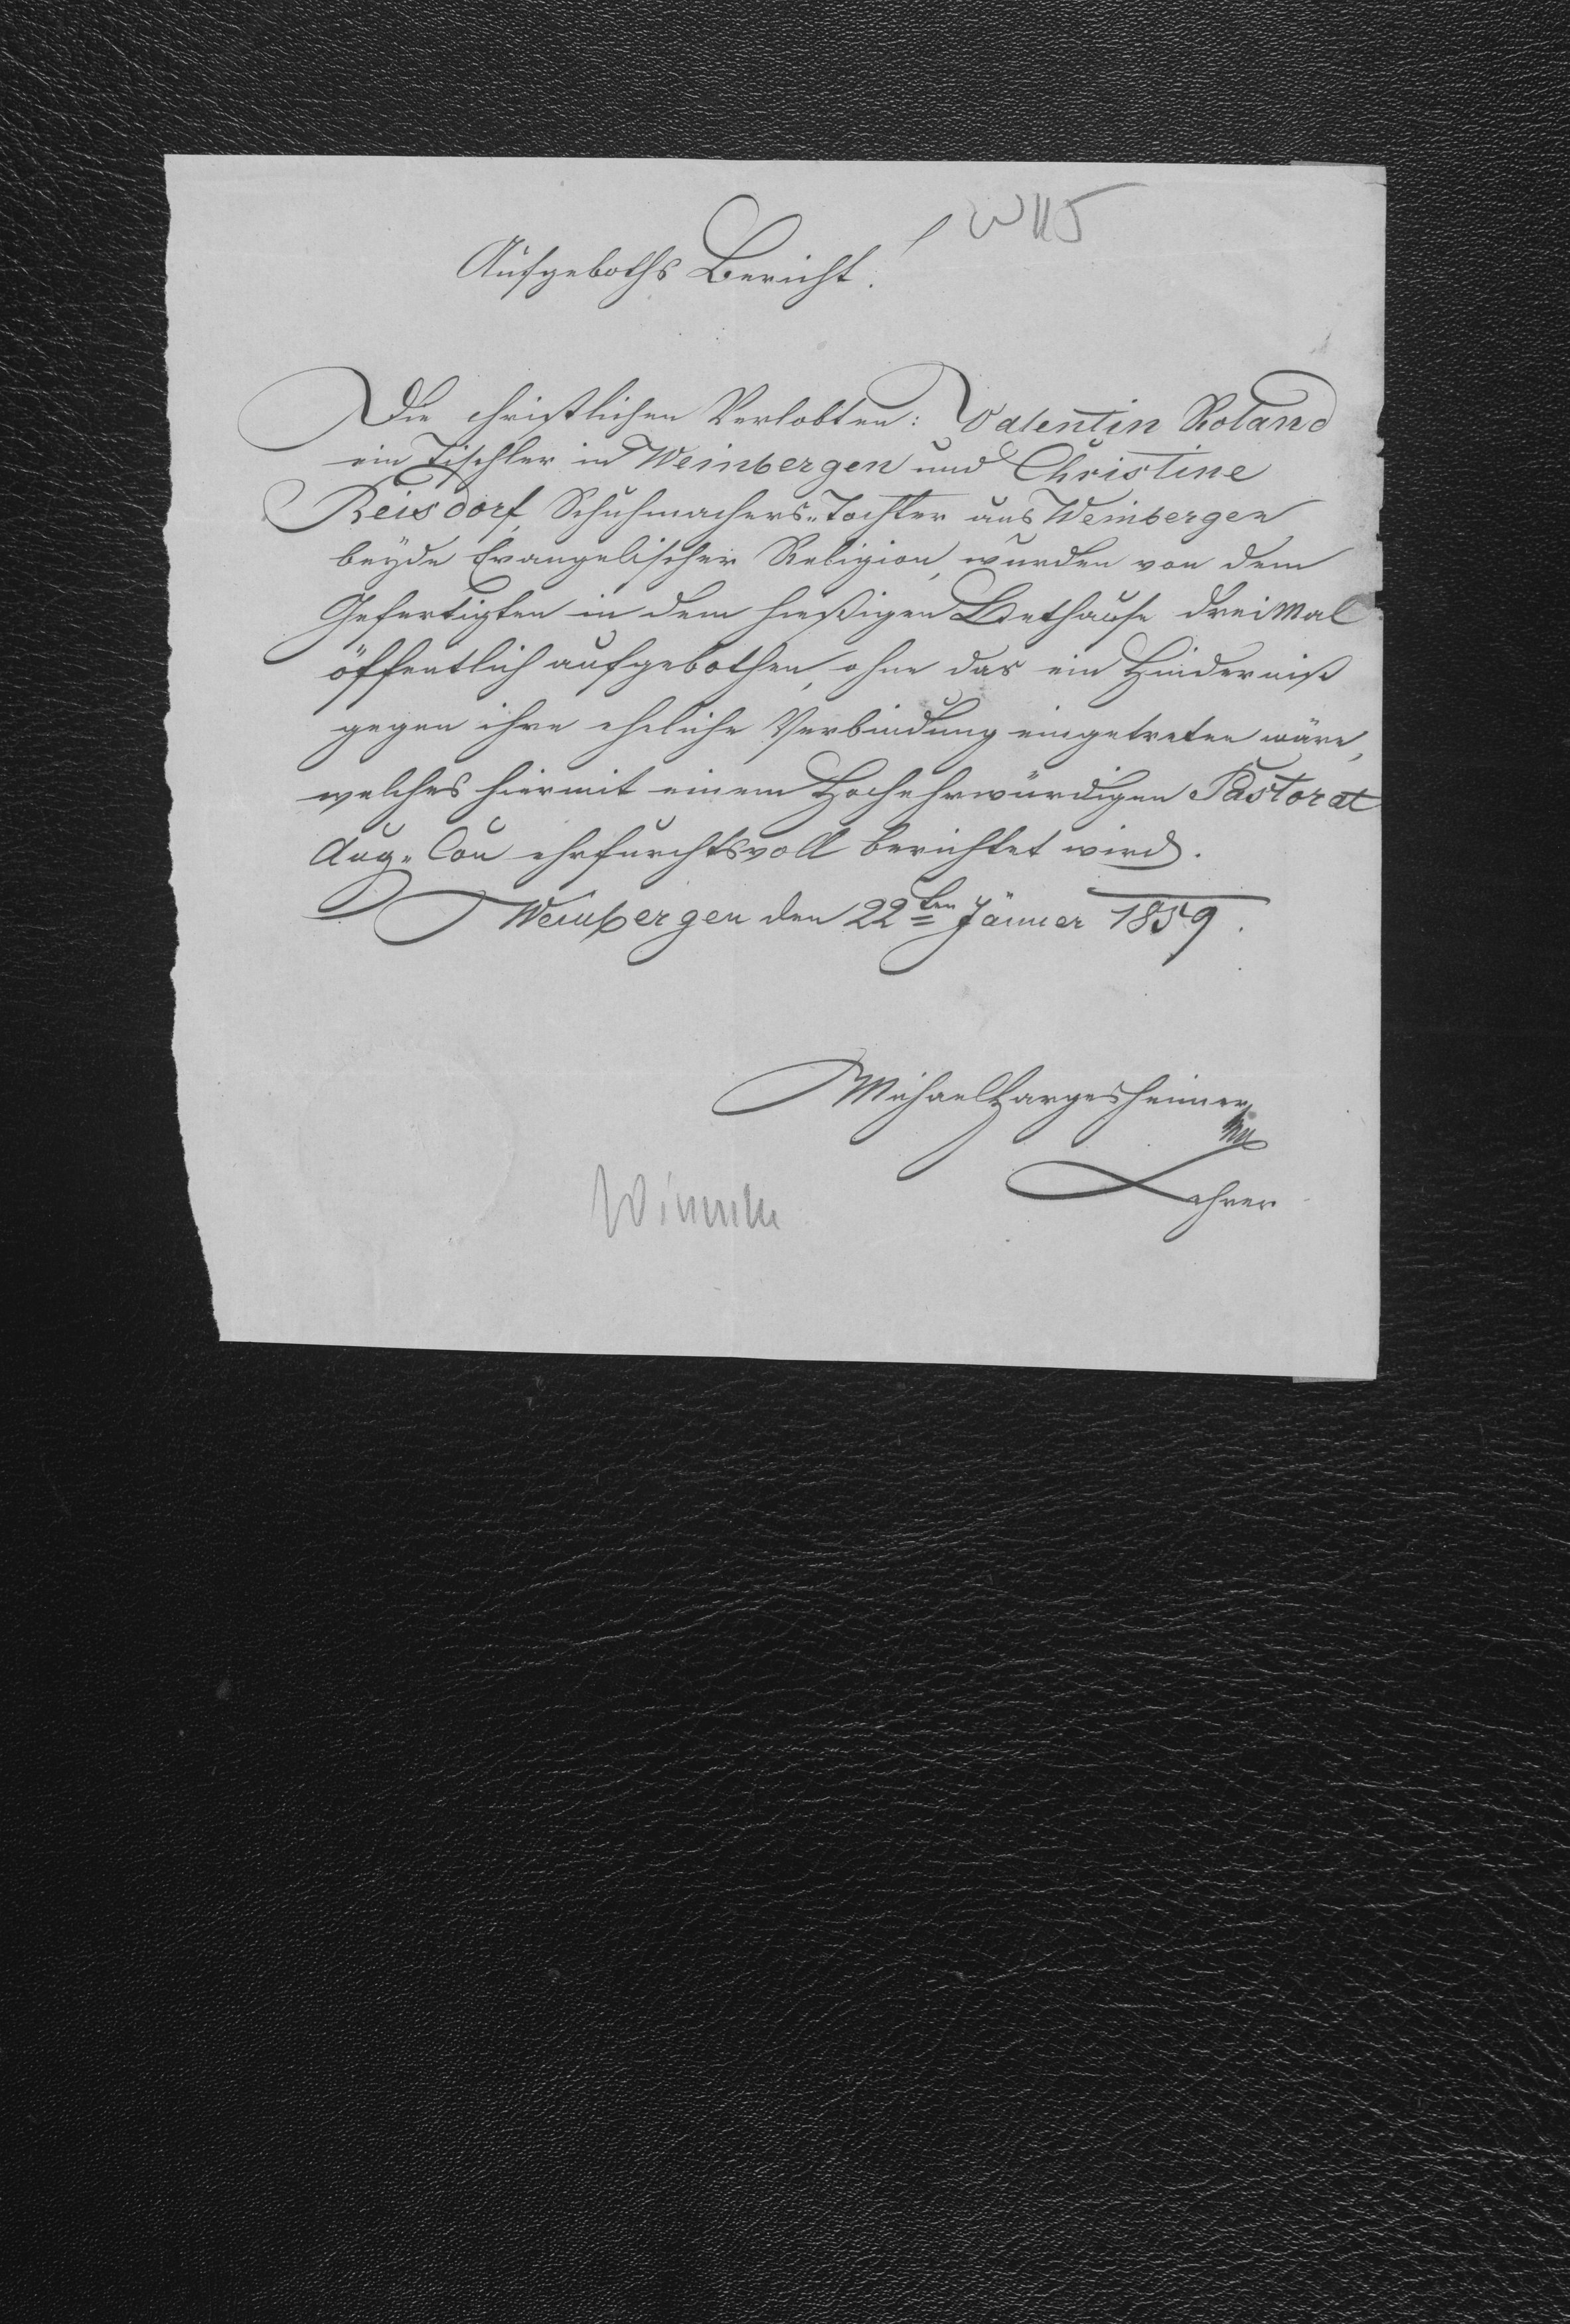 W 115
Aufgeboths Bericht.
Die christlichen Verlobten: Valentin Roland
ein Tischler in Weinbergen und Christine
Reisdorf, Schuhmachers-Tochter aus Weinbergen
beyde Evangelischer Religion, wurden von dem
Gefertigten in dem hießigen Bethause dreimal
öffentlich aufgebothen, ohne das ein Hinderniß
gegen ihre eheliche Verbindung eingetreten wäre,
welches hiermit einem Hochehrwürdigen Pastorat
Aug. Con ehrfurchtsvoll berichtet wird.
Weinbergen den 22ten Jänner 1859.
Michael Hargesheimer
Lehrer